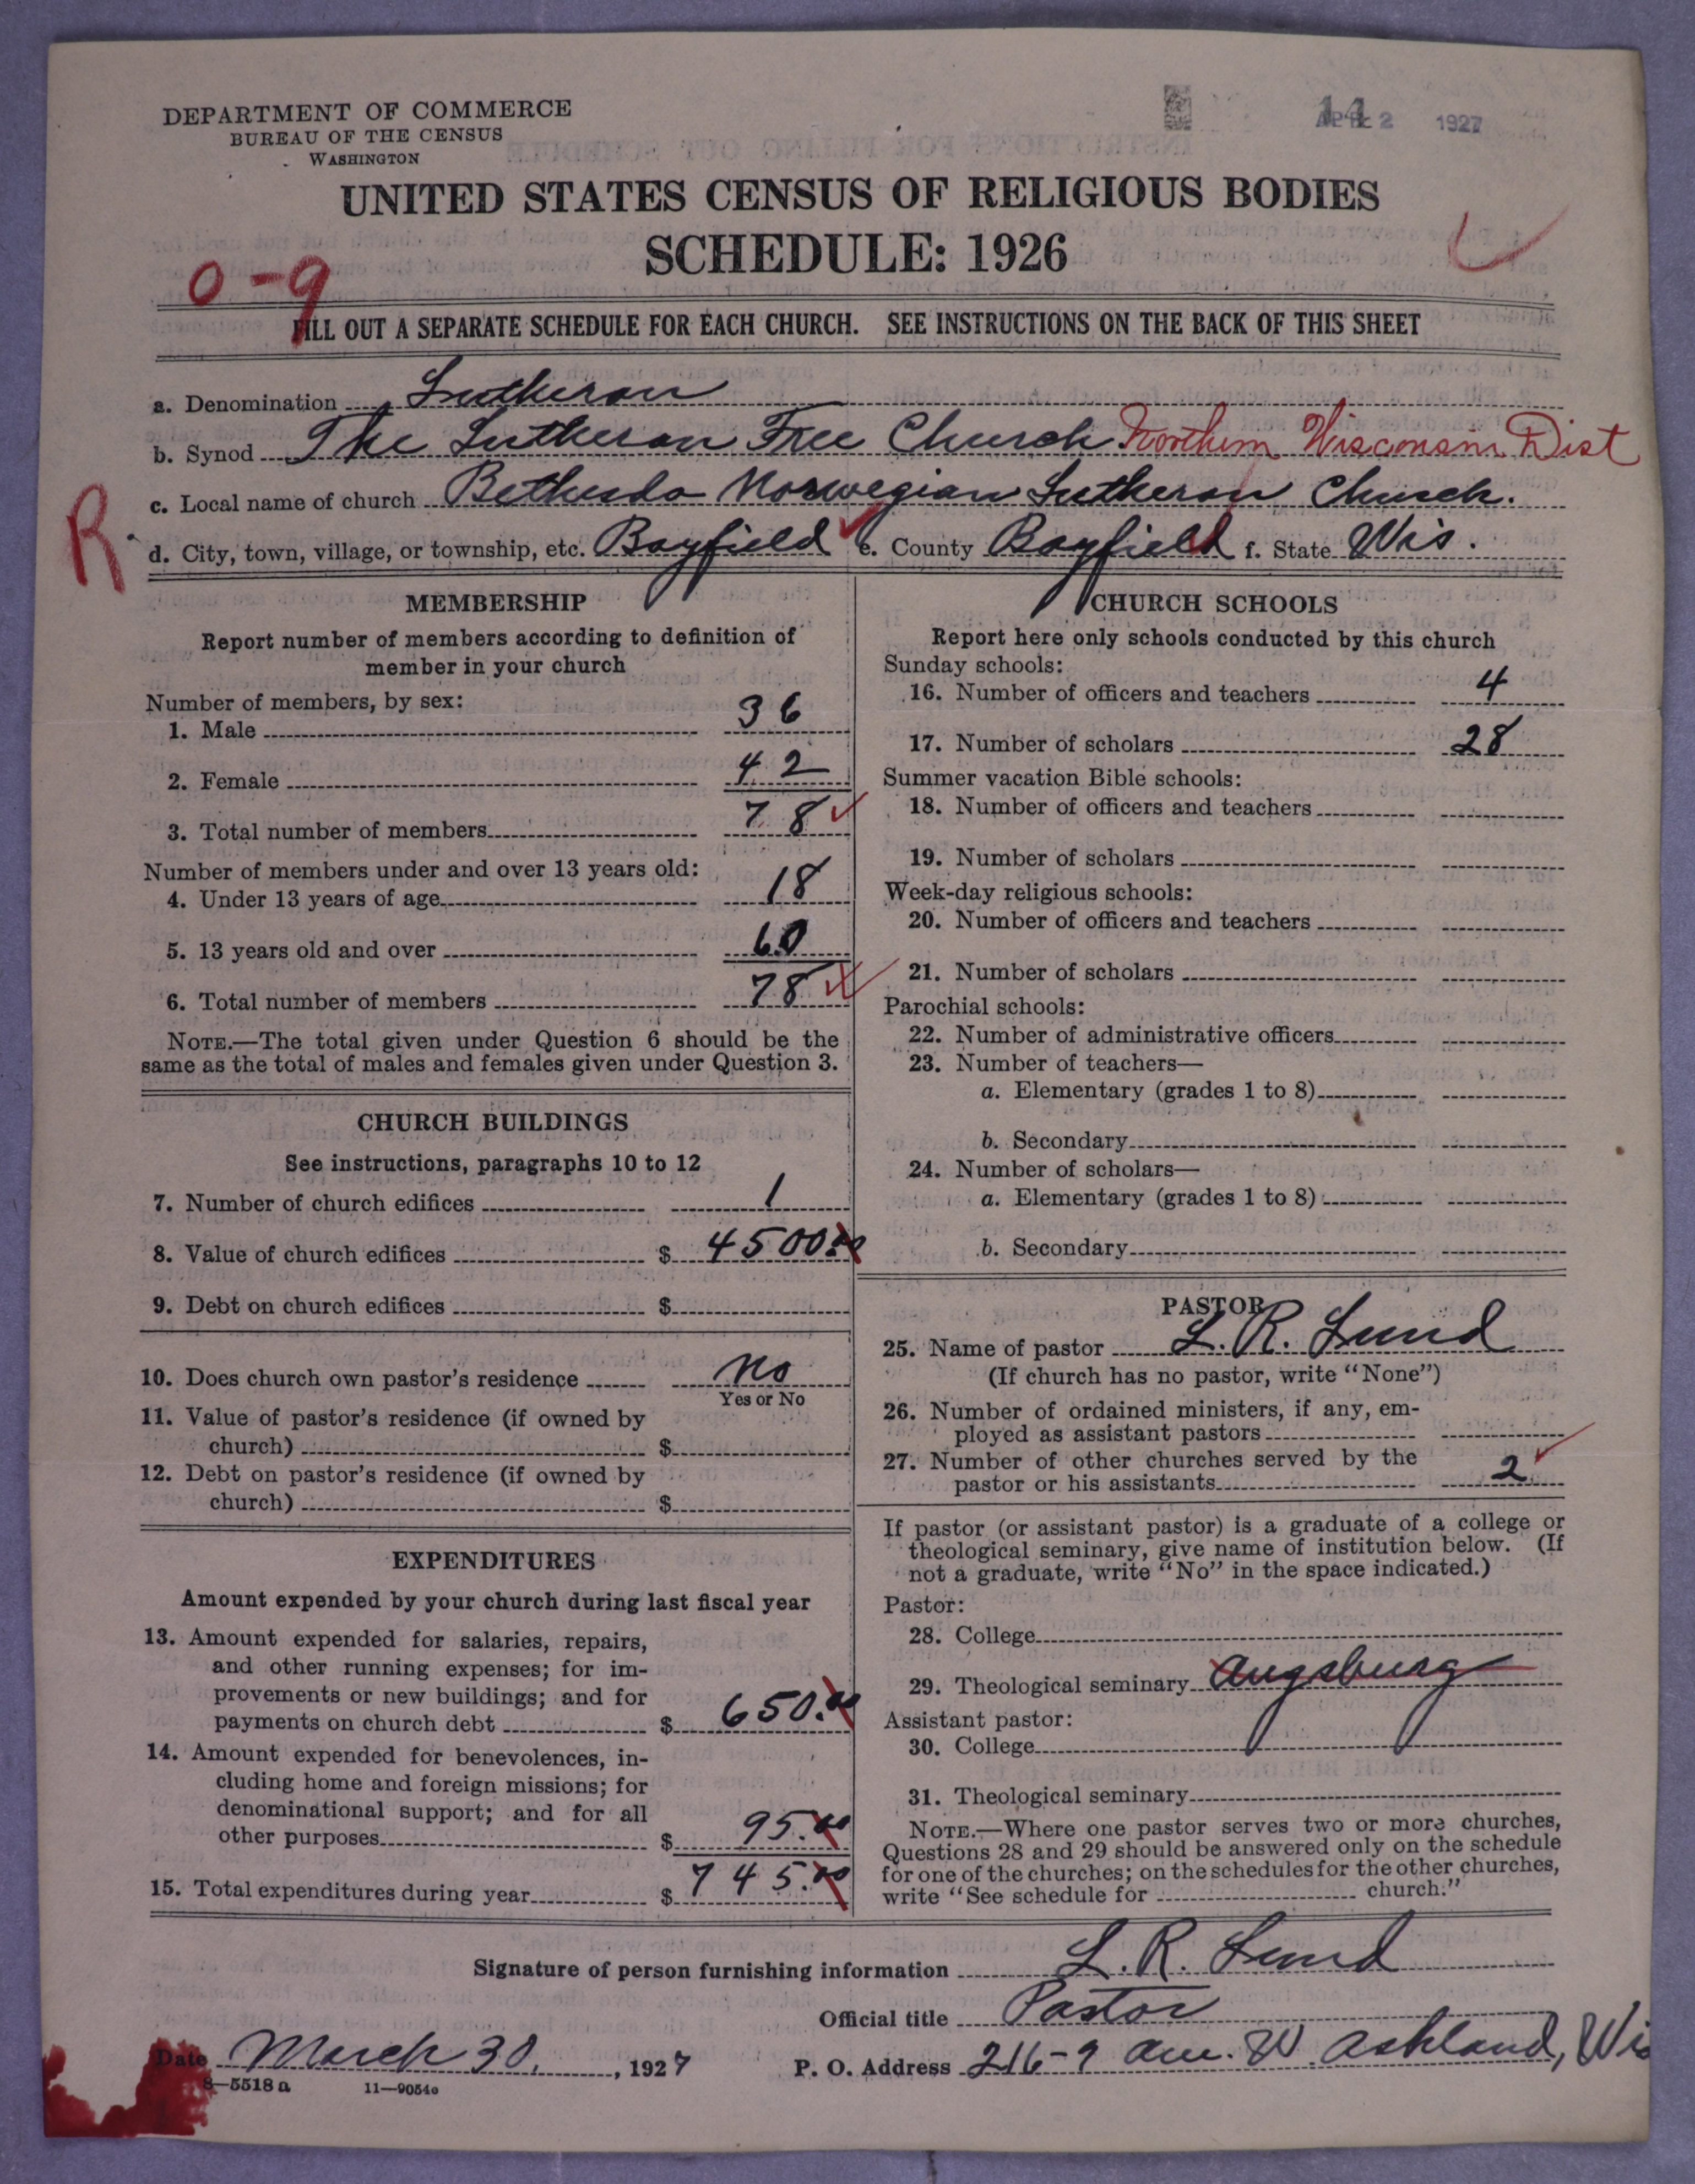 DEPARTMENT OF COMMERCE
BUREAU OF THE CENSUS
WASHINGTON
1927
UNITED STATES CENSUS OF RELIGIOUS BODIES
SCHEDULE: 1926
0-9
FILL OUT A SEPARATE SCHEDULE FOR EACH CHURCH. SEE INSTRUCTIONS ON THE BACK OF THIS SHEET
a. Denomination Lutheran
b. Synod The Lutheran Free Church Northern Wisconsin Dist
c. Local name of church Bethesda Norwegian Lutheran Church.
R.
d. City, town, village, or township, etc. Bayfield e. County Bayfield f. State Wis.
MEMBERSHIP
Report number of members according to definition of
member in your church
Number of members, by sex:
1. Male 36
2. Female 42
3. Total number of members 78
Number of members under and over 13 years old:
4. Under 13 years of age 18
5. 13 years old and over 60
6. Total number of members 78
NOTE.—The total given under Question 6 should be the
same as the total of males and females given under Question 3.
CHURCH BUILDINGS
See instructions, paragraphs 10 to 12
7. Number of church edifices 1
8. Value of church edifices $ 4500.00
9. Debt on church edifices $
10. Does church own pastor's residence No
Yes or No
11. Value of pastor's residence (if owned by
church) $
12. Debt on pastor's residence (if owned by
church) $
EXPENDITURES
Amount expended by your church during last fiscal year
13. Amount expended for salaries, repairs,
and other running expenses; for im-
provements or new buildings; and for
payments on church debt $ 650.00
14. Amount expended for benevolences, in-
cluding home and foreign missions; for
denominational support; and for all
other purposes $ 95.00
15. Total expenditures during year $ 745.00
CHURCH SCHOOLS
Report here only schools conducted by this church
Sunday schools:
16. Number of officers and teachers 4
17. Number of scholars 28
Summer vacation Bible schools:
18. Number of officers and teachers
19. Number of scholars
Week-day religious schools:
20. Number of officers and teachers
21. Number of scholars
Parochial schools:
22. Number of administrative officers
23. Number of teachers—
a. Elementary (grades 1 to 8)
b. Secondary
24. Number of scholars—
a. Elementary (grades 1 to 8)
b. Secondary
PASTOR
25. Name of pastor L. R. Lund
(If church has no pastor, write "None")
26. Number of ordained ministers, if any, em-
ployed as assistant pastors
27. Number of other churches served by the
pastor or his assistants 2
If pastor (or assistant pastor) is a graduate of a college or
theological seminary, give name of institution below. (If
not a graduate, write "No" in the space indicated.)
Pastor:
28. College
29. Theological seminary Augsburg
Assistant pastor:
30. College
31. Theological seminary
NOTE.—Where one pastor serves two or more churches,
Questions 28 and 29 should be answered only on the schedule
for one of the churches; on the schedules for the other churches,
write "See schedule for church."
Signature of person furnishing information L. R. Lund
Official title Pastor
Date March 30, 1927 P. O. Address 216-9 Ave. W. Ashland, Wis
8—5518 a 11—9054a